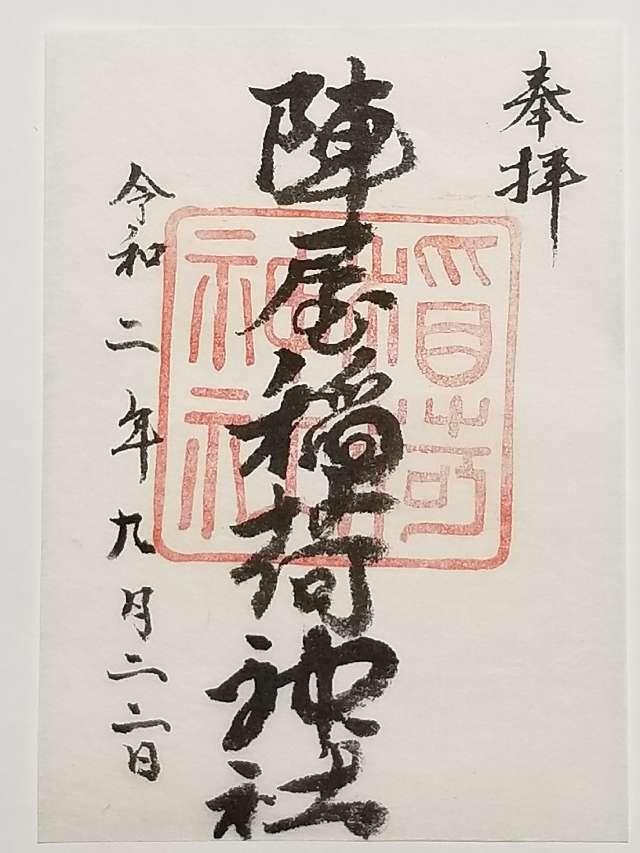 奉拝
陣屋稲荷神社
令和二年九月二三日
稲荷
神社